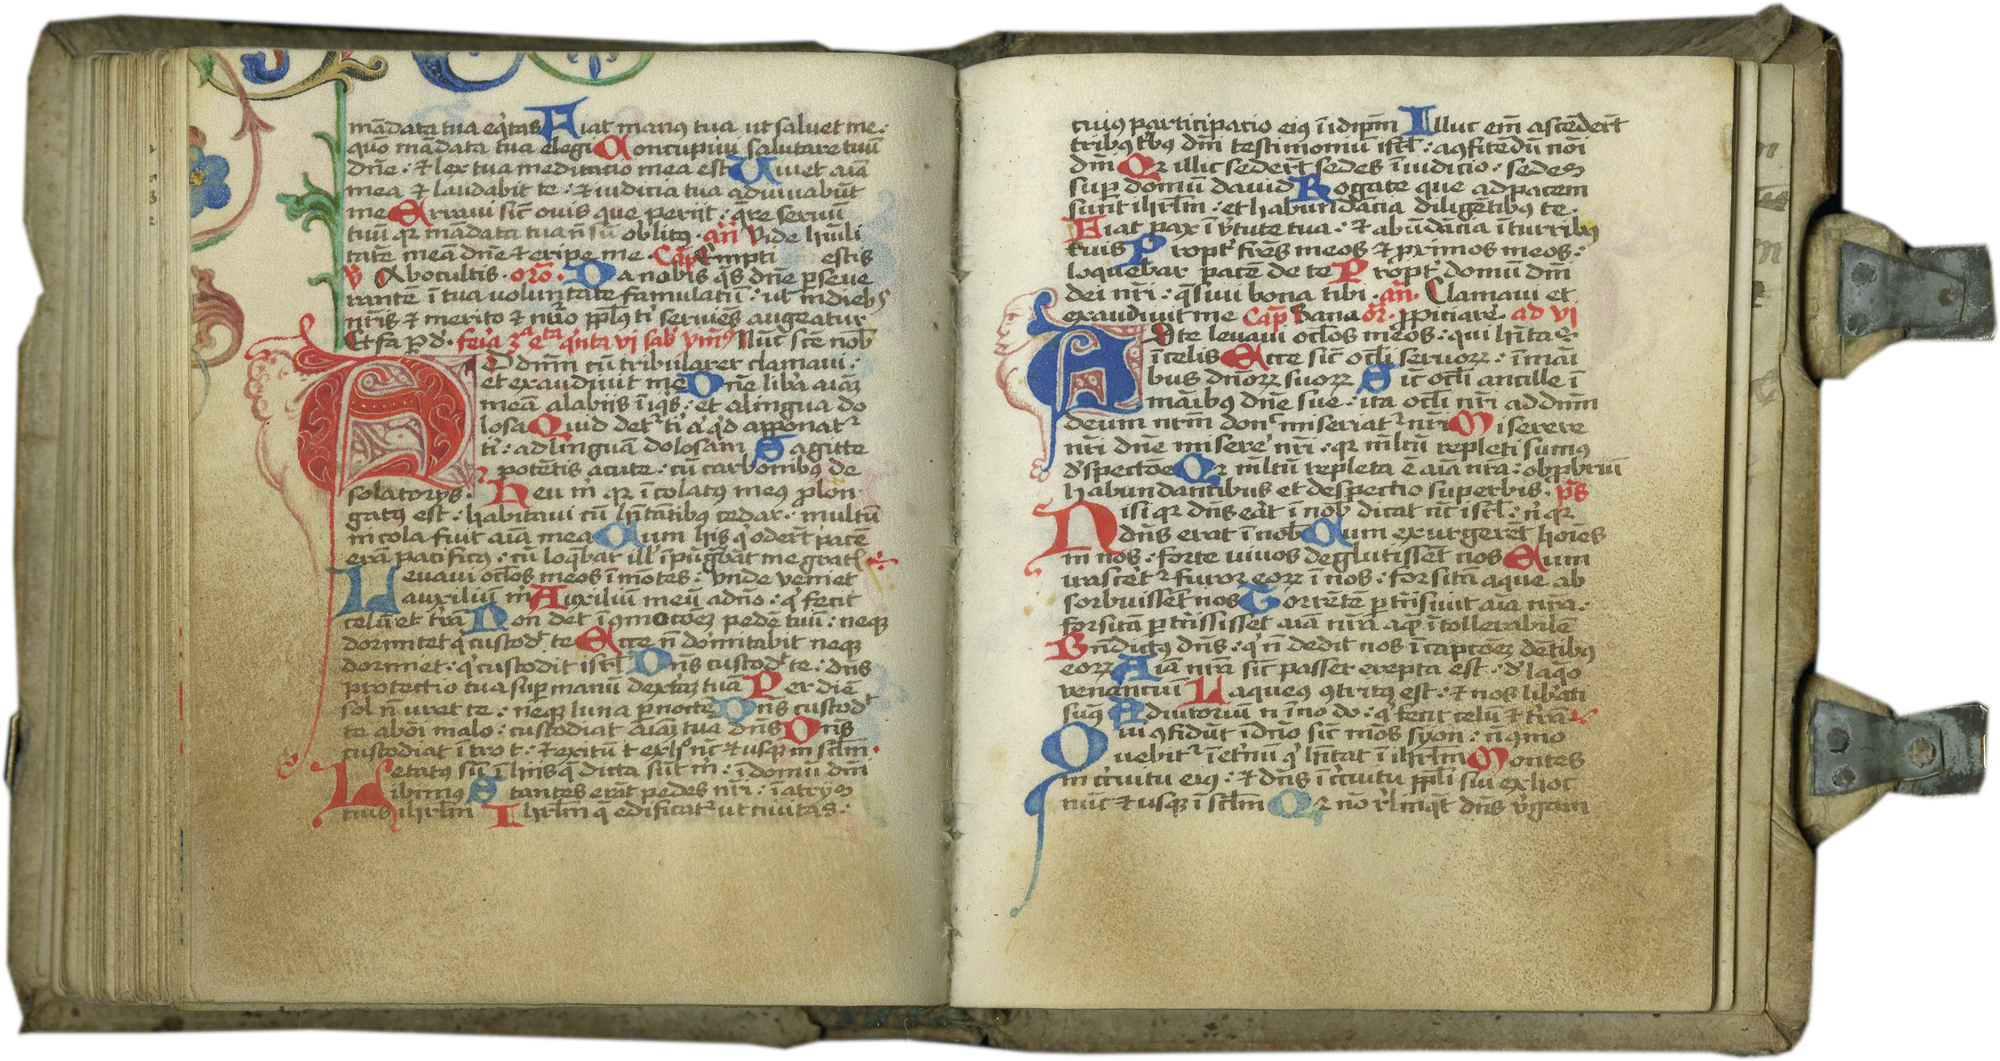 mādata tua eq̄tas Fiat manꝰ tua ut saluet me:
quō mādata tua elegi Concupiui salutare tuū
dn̄e: & lex tua meditatio mea est Uiuet aīā
mea & laudabit te: & iudicia tua adiuuabūt
me Erraui sic̄ ouis que perijt: q̄re seruū
tuū qr̄ mādata tua nō sū oblitꝰ. an̄ Vide hūili
tatē meā dn̄e & eripe me. Cap̄ Empti estis
v Ab ocultis. or̄o. Da nobis q̄s dn̄e pseue
rantē ī tua uoluntate famulatū: ut in diebꝰ
nr̄is & merito & nūo pplꝰ ti seruiēs augeatur
Et fa p d. feīa 3ᵃ 4ᵗᵃ q̄nta vi sab̄ ym̄ꝰ Nūc scē nob̄
AD dnm̄ cū tribularer clamaui:
et exaudiuit me Dn̄e lib̄a aīaꝫ
meā alabijs īiqs: et alingua do
losa Quid detʳ ti a q̄d apponatʳ
ti: ad linguā dolosam Sagitte
potētis acute: cū carbonibꝰ de
solatorijs. Heu m̄ qr̄ īcolatꝰ meꝰ plon
gatꝰ est: habitaui cū hn̄tātibꝰ cedar: multū
incola fuit aīa mea Cum his q̄ odert̄ pacē
erā pacificꝰ: cū loq̄bar ill̄ īpūg̅bāt me gratꝭ
Leuaui oc̄los meos ī mōtes: vnde veniet
auxiliū m̄ Auxiliū meū a dn̄o: q̄ fecit
celū et tr̄ā Non det ī ꝯmotōeꝫ pedē tuū: neqꝫ
dormitet q̄ custodꝭ te Ecce nō dormitabit neqꝫ
dormiet: q̄ custodit isrl̄ Dn̄s custodꝭ te: dn̄s
protectio tua sup manū dexterā tuā Per diē
sol nō uret te: neqꝫ luna p noctē Dn̄s custodꝭ
te ab oī malo: custodiat aīaꝫ tuā dn̄s Dn̄s
custodiat ītro t̄: & exitū t̄ ex h̄ nc̄ & usqꝫ in sc̄lm̄
Letatꝰ sū ī hijs q̄ dicta sūt m̄: ī domū dn̄i
ibimꝰ Stantes erāt pedes nr̄i: ī atrijs
tuis ihrl̄m Ihrl̄m q̄ edificatʳ ut ciuitas:
cuiꝰ participatio eiꝰ ī idip̄m Illuc em̄ ascēdert̄
tribꝰ tbꝰ dn̄i testimoniū isrl̄: a ꝯfitēdū noī
dn̄i Qr̄ illic sedert̄ sedes ī iudicio: sedes
sup domū dauid Rogate que ad pacem
sunt ihrl̄m: et habundācia diligētibꝰ te.
Fiat pax ī v̄tute tua: & abūdācia ī turribꝰ
tuis Propt̄ fres̄ meos & pximos meos:
loquebar pacē de te Propt̄ domū dn̄i
dei nr̄i: q̄siui bona tibi. an̄. Clamaui et
exaudiuit me Cap̄ Sana or̄. ppiciare. ad vi
ADte leuaui oc̄los meos: qui hn̄tas
ī celis Ecce sic̄ oc̄li seruoꝝ: ī māi
bus dn̄oꝝ suoꝝ Sic̄ oc̄li ancille ī
māibꝰ dn̄e sue: ita oc̄li nr̄i ad dnm̄
deum nr̄m don̄ miseriatʳ nr̄i Miserere
nr̄i dn̄e misere nr̄i: qr̄ ml̄tū repleti sumꝰ
dspectōe Qr̄ ml̄tū repleta ē aīa nr̄a: obpbriū
habundantibus et despectio superbis. ps̄
Nisi qr̄ dn̄s erāt ī nob̄ dicat nc̄ isrl̄: n̄ qr̄
dn̄s erat ī nob̄ Cum exurgerēt hoīes
in nos: forte uiuos deglutissēt nos Cum
irascetʳ furor eoꝝ ī nos: forsitā aque ab
sorbuissēt nos Torrētē ptrāsiuit aīa nr̄a:
forsitā ptrāsissꝫ aīa nr̄a aqꝫ ītollerabilē
Bn̄dictꝰ dn̄s: q̄ nō dedit nos ī captōeꝫ dētibꝰ
eoꝝ Aīa nr̄a sic̄ passer erepta est: d laq̄o
venantiū Laqueꝰ ꝯtritꝰ est: & nos lib̄ati
sumꝰ Adiutoriū nr̄ ī no do: q̄ fecit celū & tr̄ā
Qui ꝯfidūt ī dn̄o sic̄ mōs syon: n̄ ꝯmo
uebitʳ ī et̄nū q̄ hn̄tat ī ihrl̄m Montes
in circuitu eiꝰ: & dn̄s ī circuitu ppl̄i sui ex hoc
nūc & usqꝫ ī sc̄lm̄ Qr̄ nō r̄linqt̄ dn̄s v̄gam